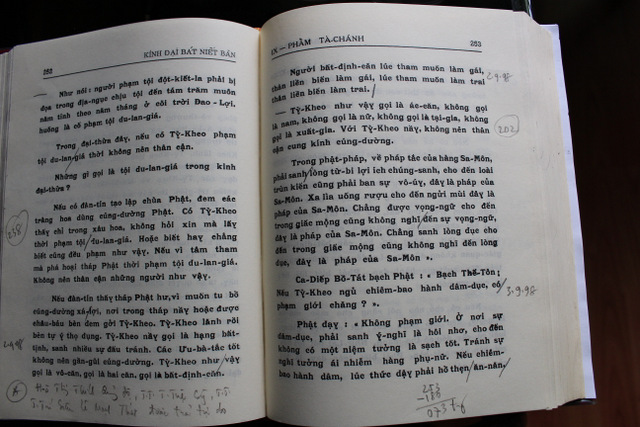 252
KINH ĐẠI BÁT NIẾT BÀN
— Như nói : người phạm tội đột-kiết-la phải bị
đọa trong địa-ngục chịu tội đến tám trăm muôn
năm tính theo năm tháng ở cõi trời Đao - Lợi,
huống là cố phạm tội du-lan-giá.
Trong đại-thừa đây, nếu có Tỳ-Kheo phạm
tội du-lan-giá thời không nên thân cận.
Những gì gọi là tội du-lan-giá trong kinh
đại-thừa ?
Nếu có đàn-tín tạo lập chùa Phật, đem các
tràng hoa dùng cúng-dường Phật. Có Tỳ-Kheo
thấy chỉ trong xâu hoa, không hỏi xin mà lấy
thời phạm tội du-lan-giá. Hoặc biết hay chẳng
biết cũng đều phạm như vậy. Nếu vì tâm tham
mà phá hoại tháp Phật thời phạm tội du-lan-giá.
Không nên thân cận những người như vậy.
Nếu đàn-tín thấy tháp Phật hư, vì muốn tu bổ
cúng-dường xá-lợi, nơi trong tháp này hoặc được
châu-báu bèn đem gởi Tỳ-Kheo. Tỳ-Kheo lãnh rồi
bèn tự ý thọ dụng. Tỳ-Kheo này gọi là hạng bất-
tịnh, sanh nhiều sự đấu tránh. Các Ưu-bà-tắc tốt
không nên gần-gũi cúng-dường. Tỳ-Kheo như vậy
gọi là vô-căn, gọi là hai căn, gọi là bất-định-căn.
238
2-9-98
A
IX — PHẨM TÀ-CHÁNH
253
Người bất-định-căn lúc tham muốn làm gái,
thân liền biến làm gái, lúc tham muốn làm trai
thân liền biến làm trai.
2-9-98
— Tỳ-Kheo như vậy gọi là ác-căn, không gọi
là nam, không gọi là nữ, không gọi là tại-gia, không
gọi là xuất-gia. Với Tỳ-Kheo này, không nên thân
cận cung kính cúng-dường.
202
Trong phật-pháp, về pháp tắc của hàng Sa-Môn,
phải sanh lòng từ-bi lợi ích chúng-sanh, cho đến loài
trùn kiến cũng phải ban sự vô-úy, đây là pháp của
Sa-Môn. Xa lìa uống rượu cho đến ngửi mùi đây là
pháp của Sa-Môn. Chẳng được vọng-ngữ cho đến
trong giấc mộng cũng không nghĩ đến sự vọng-ngữ,
đây là pháp của Sa-Môn. Chẳng sanh lòng dục cho
đến trong giấc mộng cũng không nghĩ đến lòng
dục, đây là pháp của Sa-Môn ».
Ca-Diếp Bồ-Tát bạch Phật : « Bạch Thế-Tôn ;
Nếu Tỳ-Kheo ngủ chiêm-bao hành dâm-dục, có
phạm giới chăng ? ».
3-9-98
Phật dạy : « Không phạm giới. Ở nơi sự
dâm-dục, phải sanh ý-nghĩ là hôi nhơ, cho đến
không có một niệm tưởng là sạch tốt. Tránh sự
nghĩ tưởng ái nhiễm hàng phụ-nữ. Nếu chiêm-
bao hành dâm, lúc thức dậy phải hổ thẹn ăn-năn,
253
-180
073